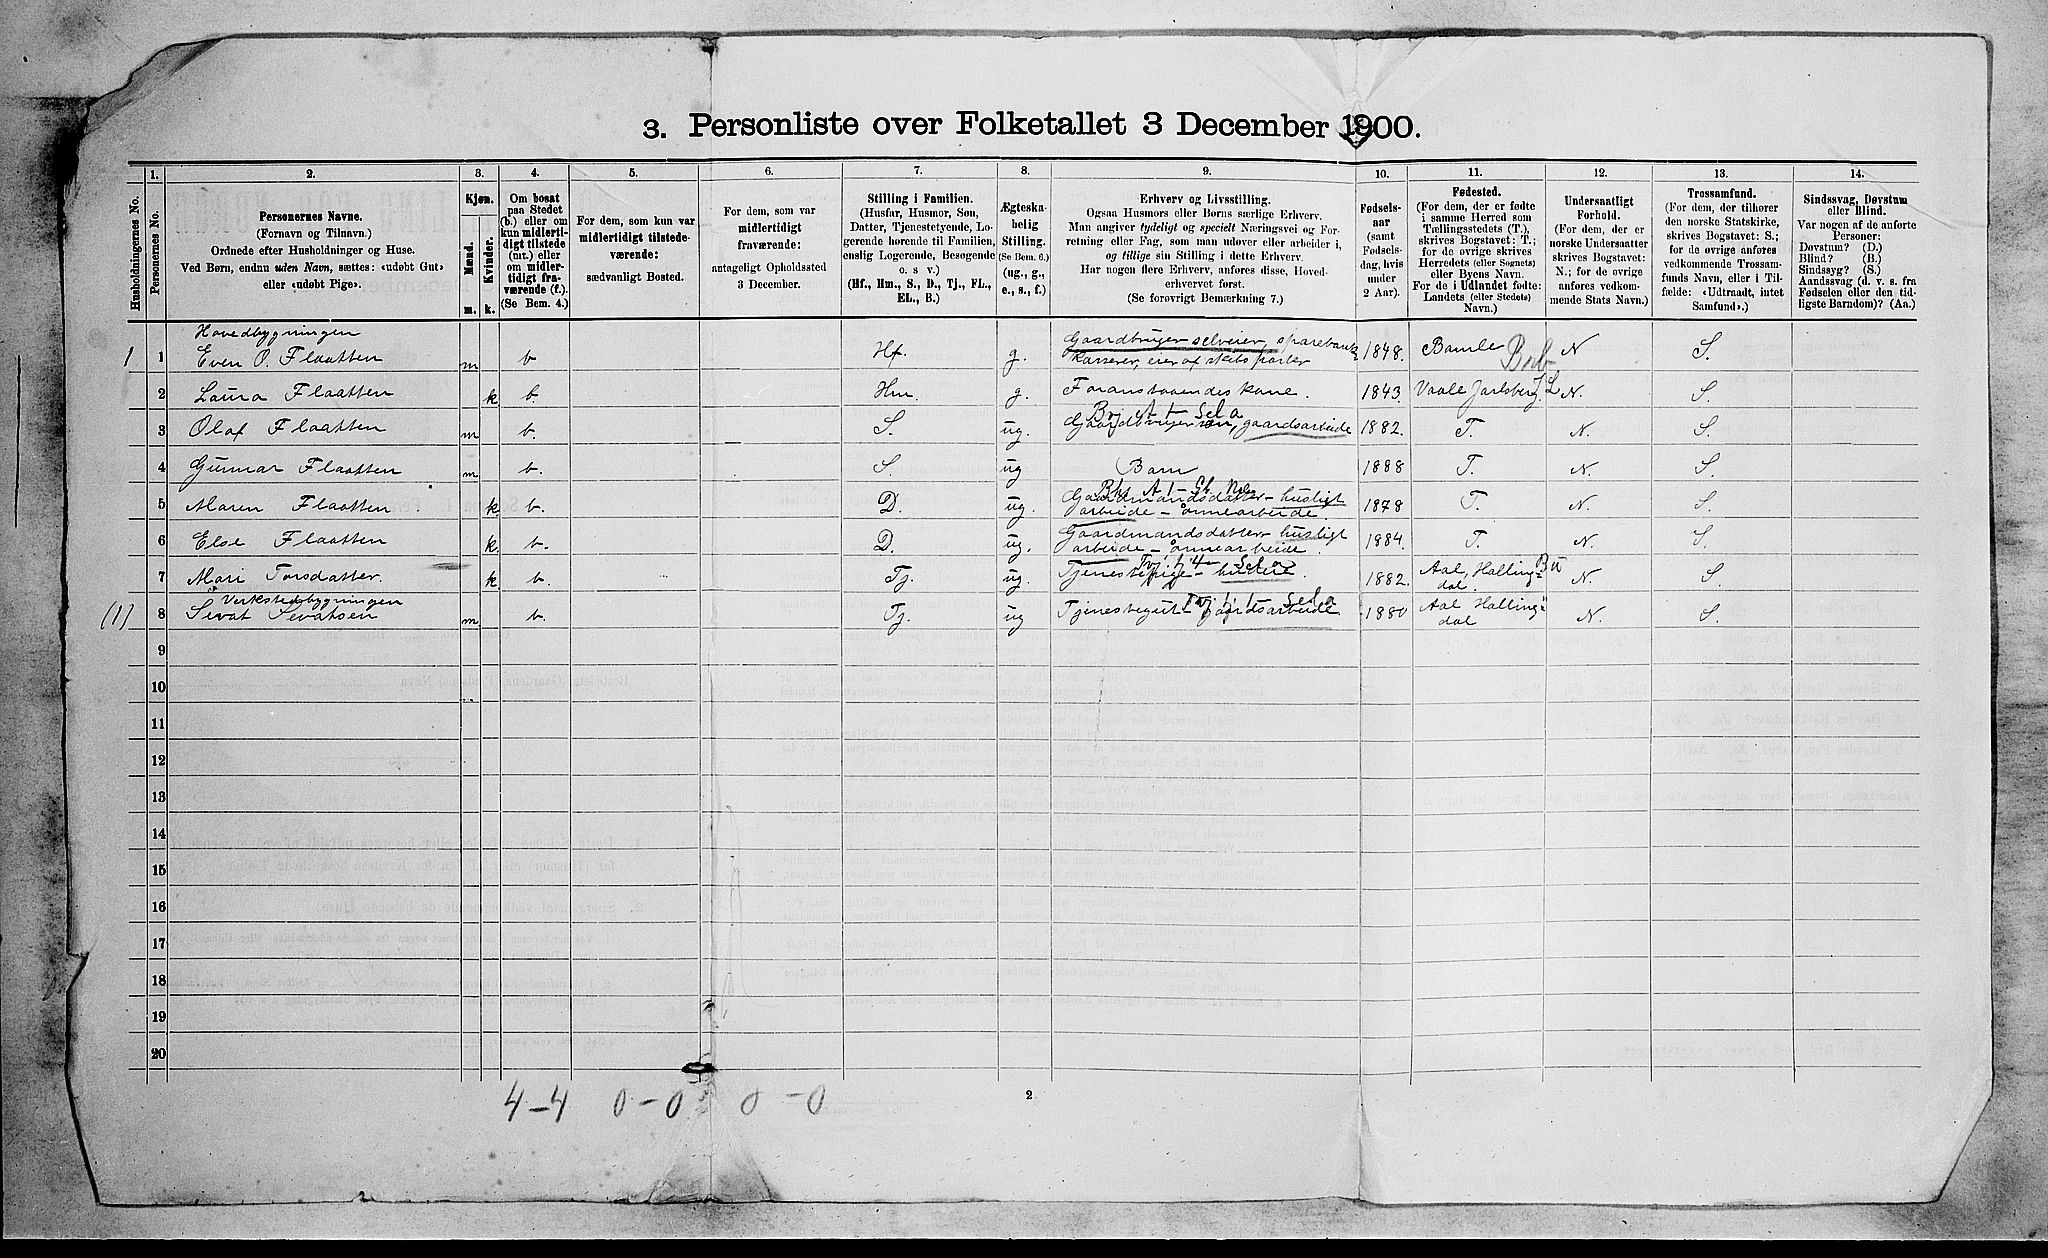 3. Personliste over Folketallet 3 December 1900.
Husholdningernes No.
1.
Personernes No.
2.
Personernes Navne.
(Fornavn og Tilnavn.)
Ordnede efter Husholdninger og Huse.
Ved Børn, endnu uden Navn, sættes: «udøbt Gut»
eller «udøbt Pige».
3.
Kjøn.
Mænd.
Kvinder.
m.
k.
4.
Om bosat
paa Stedet
(b.) eller om
kun midlerti-
digt tilstede
(mt.) eller
om midler-
tidigt fra-
værende (f.).
(Se Bem. 4.)
5.
For dem, som kun var
midlertidigt tilstede-
værende:
sædvanligt Bosted.
6.
For dem, som var
midlertidigt
fraværende:
antageligt Opholdssted
3 December.
7.
Stilling i Familien.
(Husfar, Husmor, Søn,
Datter, Tjenestetyende, Lo-
gerende hørende til Familien,
enslig Logerende, Besøgende
o. s v.)
(Hf., Hm., S., D., Tj., FL.,
EL., B.)
8.
Ægteska-
belig
Stilling.
(Se Bem. 6.)
(ug., g.,
e., s., f.)
9.
Erhverv og Livsstilling.
Ogsaa Husmors eller Børns særlige Erhverv.
Man angiver tydeligt og specielt Næringsvei og For-
retning eller Fag, som man udøver eller arbeider i,
og tillige sin Stilling i dette Erhverv.
Har nogen flere Erhverv, anføres disse, Hoved-
erhvervet først.
(Se forøvrigt Bemærkning 7.)
10.
Fødsels-
aar
(samt
Fødsels-
dag, hvis
under
2 Aar).
11.
Fødested.
(For dem, der er fødte
i samme Herred som
Tællingsstedets (T.),
skrives Bogstavet: T.;
for de øvrige skrives
Herredets (eller Sognets)
eller Byens Navn.
For de i Udlandet fødte:
Landets (eller Stedets)
Navn.)
12.
Undersaatligt
Forhold.
(For dem, der er
norske Undersaatter
skrives Bogstavet:
N.; for de øvrige
anføres vedkom-
mende Stats Navn.)
13.
Trossamfund.
(For dem, der tilhører
den norske Statskirke,
skrives Bogstavet: S.;
for de øvrige anføres
vedkommende Trossam-
funds Navn, eller i Til-
fælde: «Udtraadt, intet
Samfund».)
14.
Sindssvag, Døvstum
eller Blind.
Var nogen af de anførte
Personer:
Døvstum? (D.)
Blind? (B.)
Sindssyg? (S.)
Aandssvag (d. v. s. fra
Fødselen eller den tid-
ligste Barndom)? (Aa.)
Hovedbygningen
1 1 Even O. Flaatten m b Hf. g. Gaardbruger selveier, sparebank
Kasserer, eier af skibsparter 1848. Bamle Brb N S.
2 Laura Flaatten k b. Hm. g. Foranstaaendes kone. 1843. Vaale Jarlsberg J.L N. S.
3 Olaf Flaatten m b. S. ug. Gaardbrugersøn, gaardsarbeide 1882. T. N. S.
4 Gunnar Flaatten m b. S. ug Barn 1888 T. N. S.
5 Maren Flaatten k. b. D. ug. Gaardmandsdatter - husligt
arbeide - ønnearbeide. 1878 T. N. S.
6 Else Flaatten k. b. D. ug. Gaardmandsdatter - husligt
arbeide - ønnearbeide. 1884. T. N. S.
7 Mari Torsdatter k b. Tj. ug. Tjenestepige - 1882. Aal, Halling-
dal. Bu N. S.
Verkstedsbygningen
(1) 8 Sevat Sevatsen m b. Tj. ug Tjenestegut - gaardsarbeide 1880 Aal Halling-
dal N. S.
9
10
11
12
13
14
15
16
17
18
19
20
4-4 0-0 0-0
2